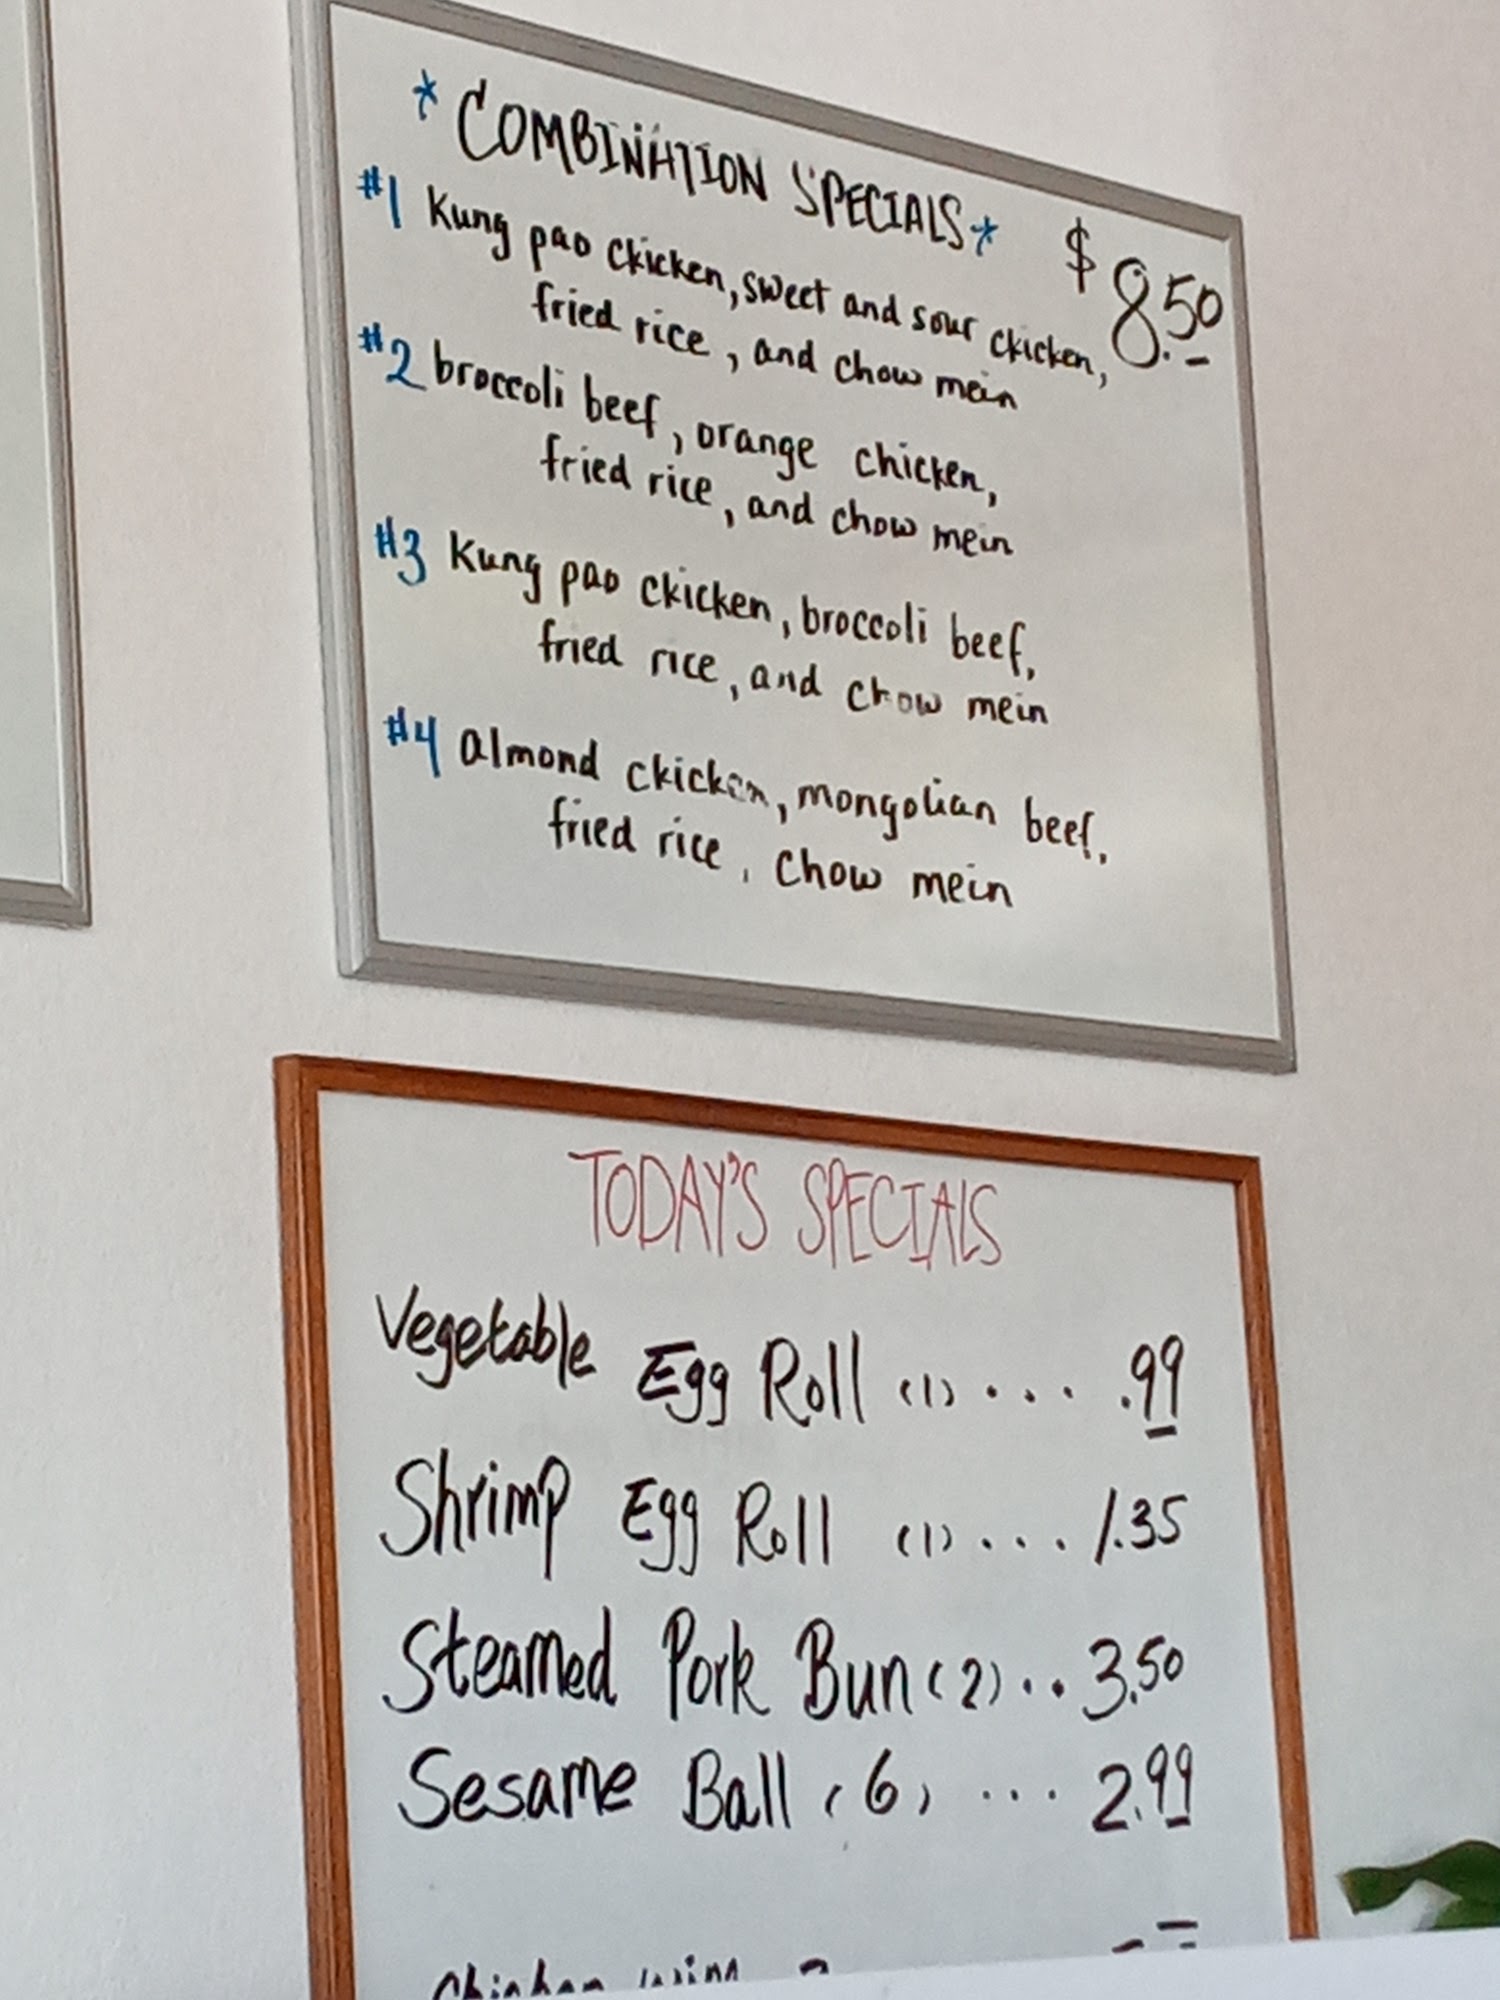 * COMBINATION SPECIALS * $8.50
#1 Kung pao chicken, sweet and sour chicken,
fried rice, and chow mein
#2 broccoli beef, orange chicken,
fried rice, and chow mein
#3 Kung pao chicken, broccoli beef,
fried rice, and chow mein
#4 almond chicken, mongolian beef,
fried rice, chow mein
TODAY'S SPECIALS
Vegetable Egg Roll (1) ... .99
Shrimp Egg Roll (1) ... 1.35
Steamed Pork Bun (2) .. 3.50
Sesame Ball (6) ... 2.99
Chicken wing